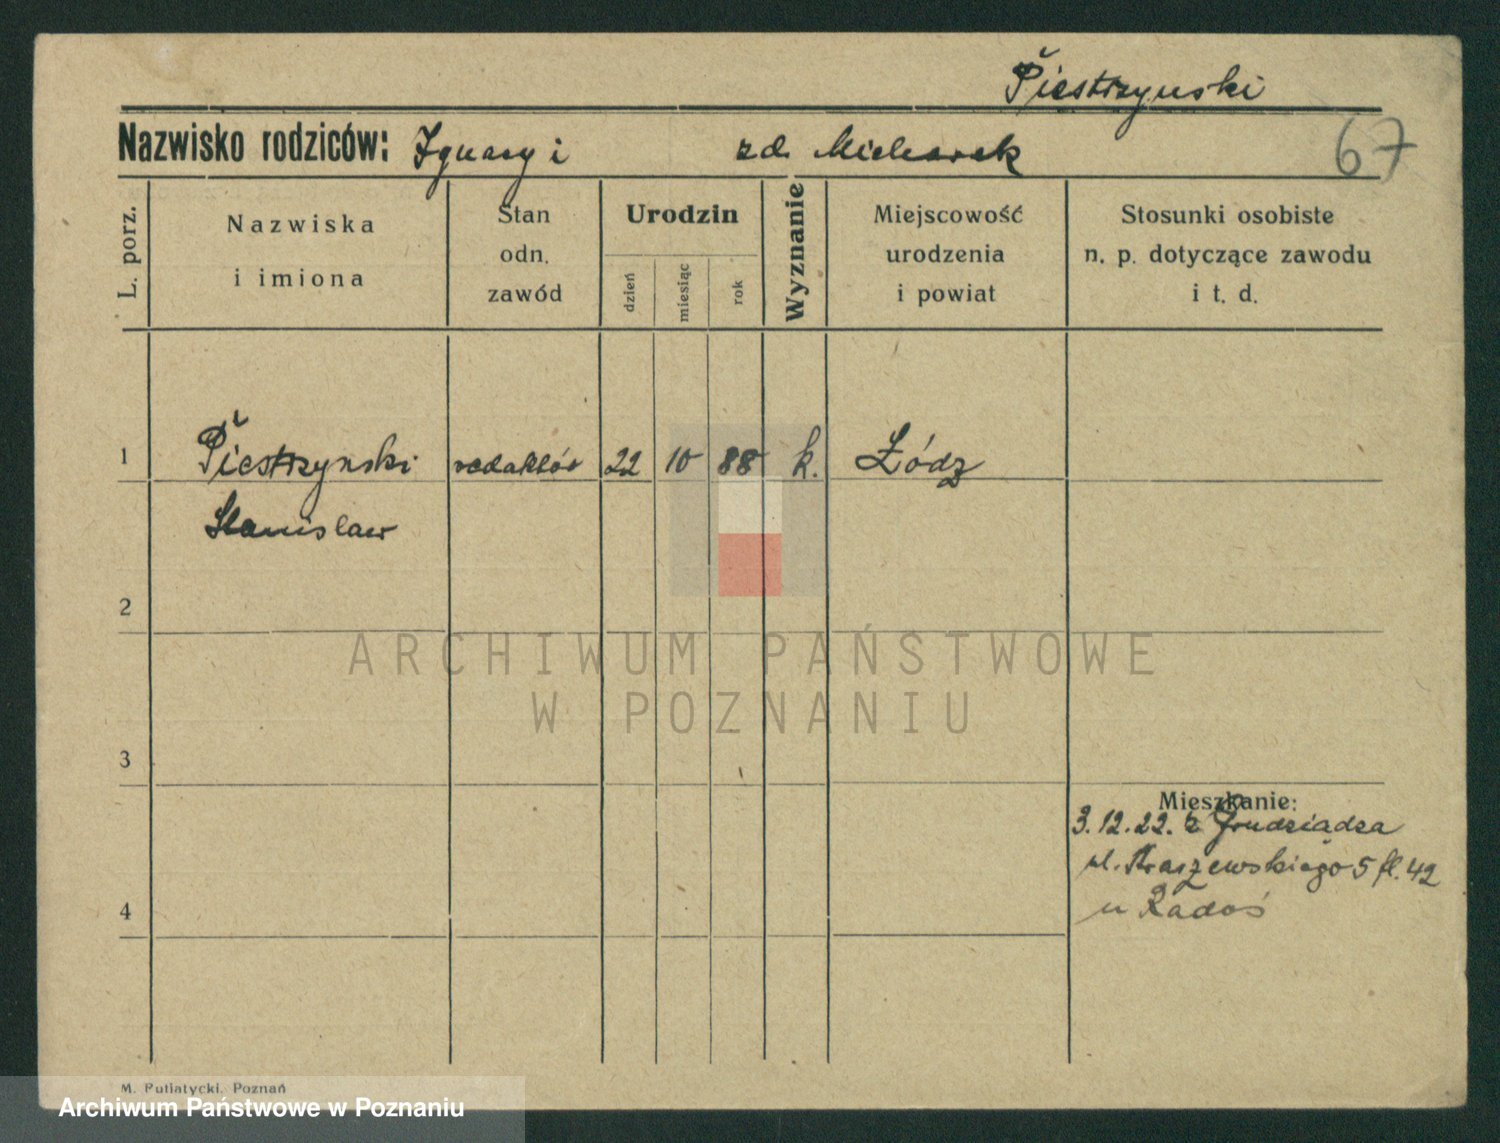 Piestrzynski
Nazwisko rodziców: Ignacy i zd. Michorek
67
L. porz.
Nazwiska
i imiona
Stan
odn.
zawód
Urodzin
dzień
miesiąc
rok
Wyznanie
Miejscowość
urodzenia
i powiat
Stosunki osobiste
n. p. dotyczące zawodu
i t. d.
1 Piestrzynski redaktór 22 10 88 k. Łódz
Stanislaw
2
ARCHIWUM PAŃSTWOWE
W POZNANIU
3
Mieszkanie:
3.12.22. z Grudziądza
ul. Kraszewskiego 5 fl. 42
u Radoś
4
M. Putiatycki, Poznań
Archiwum Państwowe w Poznaniu